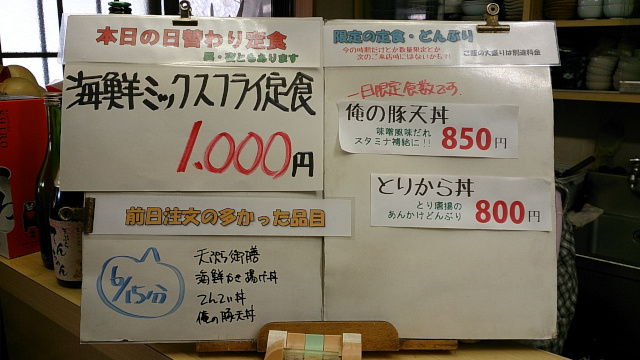 本日の日替わり定食
昼・夜ともあります
海鮮ミックスフライ定食
1.000円
前日注文の多かった品目
6/15分
天ぷら御膳
海鮮かき揚げ丼
てんてい丼
俺の豚天丼
限定の定食・どんぶり
今の時期だけとか数量限定とか
次のご来店時にはないかも!!
ご飯の大盛りは別途料金
一日限定食数です
俺の豚天丼
味噌風味だれ
スタミナ補給に!!
850円
とりから丼
とり唐揚の
あんかけどんぶり
800円